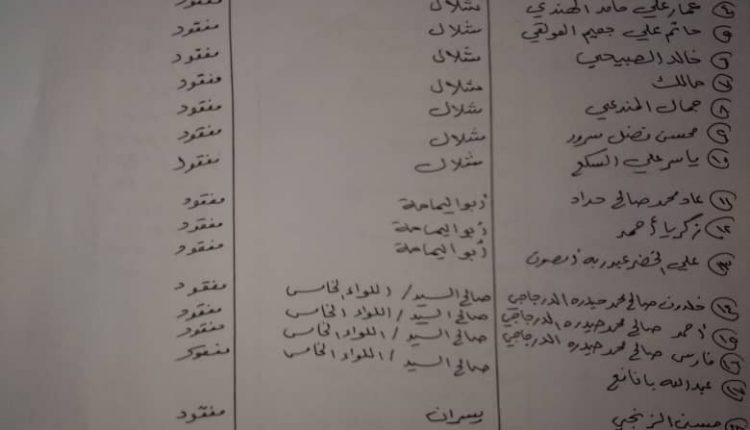 عمار علي حامد الهندي شلال مفقود
حاتم علي جعيم العولقي شلال مفقود
خالد الصبيحي شلال مفقود
مالك شلال مفقود
٨ جمال المندعي شلال مفقود
٩ محسن فضل سرور شلال مفقود
١٠ ياسر علي السكع شلال مفقود
١١ عاد محمد صالح حداد أبو اليمامة مفقود
١٢ زكريا أحمد أبو اليمامة مفقود
١٣ علي الخضر عبدربه أبو اليمامة مفقود
١٤ خلدون صالح محمد حيدره الدرجاجي صالح السيد / اللواء الخامس مفقود
١٥ أحمد صالح محمد حيدره الدرجاجي صالح السيد / اللواء الخامس مفقود
١٦ فارس صالح محمد حيدره الدرجاجي صالح السيد / اللواء الخامس مفقود
١٧ عبدالله بانافع صالح السيد / اللواء الخامس مفقود
الزنجي يسران مفقود